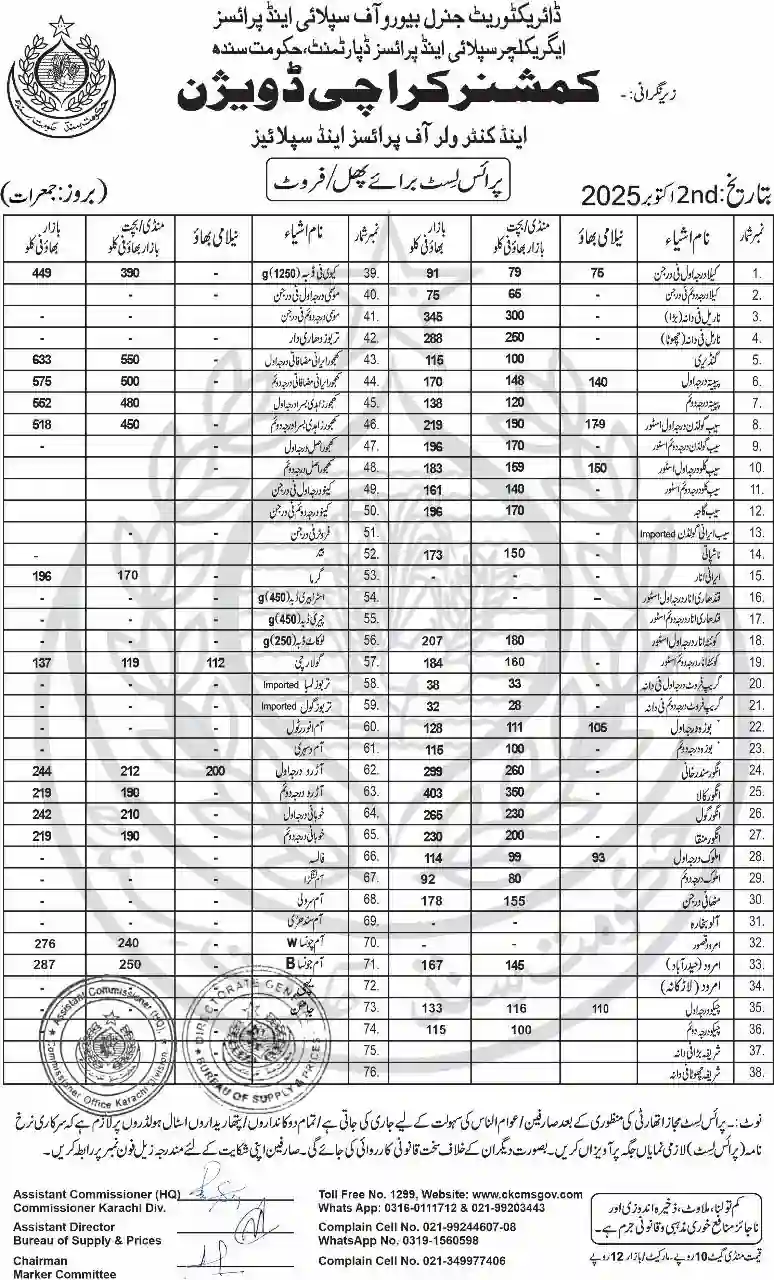 ڈائریکٹوریٹ جنرل بیورو آف سپلائی اینڈ پرائسز
ایگریکلچر سپلائی اینڈ پرائسز ڈپارٹمنٹ، حکومت سندھ
زیرنگرانی:-
کمشنر کراچی ڈویژن
اینڈ کنٹرولر آف پرائسز اینڈ سپلائیز
پرائس لسٹ برائے پھل/فروٹ
بتاریخ: 2nd اکتوبر 2025
(بروز: جمعرات)
نمبر شمار نام اشیاء نیلامی بھاؤ منڈی/بچت بازار بھاؤ فی کلو بازار بھاؤ فی کلو نمبر شمار نام اشیاء نیلامی بھاؤ منڈی/بچت بازار بھاؤ فی کلو بازار بھاؤ فی کلو
1. کیلا درجہ اول فی درجن 75 79 91 39. کیوی فی ڈبہ (1250)g - 390 449
2. کیلا درجہ دوئم فی درجن - 65 75 40. موسمی درجہ اول فی درجن - - -
3. ناریل فی دانہ (بڑا) - 300 345 41. موسمی درجہ دوئم فی درجن - - -
4. ناریل فی دانہ (چھوٹا) - 250 288 42. تربوز دھاری دار - - -
5. گنڈیری 100 115 43. کھجور ایرانی مضافاتی درجہ اول - 550 633
6. پپیتہ درجہ اول 140 148 170 44. کھجور ایرانی مضافاتی درجہ دوئم - 500 575
7. پپیتہ درجہ دوئم - 120 138 45. کھجور زاہدی بسرا درجہ اول - 480 552
8. سیب گولڈن درجہ اول اسٹور 179 190 219 46. کھجور زاہدی بسرا درجہ دوئم - 450 518
9. سیب گولڈن درجہ دوئم اسٹور - 170 196 47. کھجور اصل درجہ اول - -
10. سیب کلو درجہ اول اسٹور 150 159 183 48. کھجور اصل درجہ دوئم - -
11. سیب کلو درجہ دوئم اسٹور - 140 161 49. کینو درجہ اول فی درجن
12. سیب گاجہ 170 196 50. کینو درجہ دوئم فی درجن
13. سیب ایرانی گولڈن Imported - 51. فروٹر فی درجن - -
14. ناشپاتی 150 173 52. -
15. ایرانی انار - - - 53. گرما - 170 196
16. قندھاری انار درجہ اول اسٹور - 54. اسٹرابیری ڈبہ (450)g
17. قندھاری انار درجہ دوئم اسٹور 55. چیری ڈبہ (450)g - -
18. کوئٹہ انار درجہ اول اسٹور - 180 207 56. لوکاٹ ڈبہ (250)g - - -
19. کوئٹہ انار درجہ دوئم اسٹور - 160 184 57. گولارچی 112 119 137
20. گریپ فروٹ درجہ اول فی دانہ - 33 38 58. تربوز لمبا Imported - - -
21. گریپ فروٹ درجہ دوئم فی دانہ - 28 32 59. تربوز گول Imported - - -
22. بوزہ درجہ اول 105 111 128 60. آم انور رٹول - - -
23. بوزہ درجہ دوئم - 100 115 61. آم دسہری - - -
24. انگور سندرخانی - 260 299 62. آڑو درجہ اول 200 212 244
25. انگور کالا - 350 403 63. آڑو درجہ دوئم - 190 219
26. انگور گول - 230 265 64. خوبانی درجہ اول - 210 242
27. انگور منقا - 200 230 65. خوبانی درجہ دوئم - 190 219
28. املوک درجہ اول 93 99 114 66. فالسہ - - -
29. املوک درجہ دوئم 80 92 67. آم لنگڑا - - -
30. مٹھائی درجن 155 178 68. آم سرولی - - -
31. آلو بخارہ 69. آم سندھڑی - - -
32. امرود قصور - - 70. آم چونسا W - 240 276
33. امرود (حیدرآباد) - 145 167 71. آم چونسا B - 250 287
34. امرود (لاڑکانہ) 72. -
35. چیکو درجہ اول 110 116 133 73. -
36. چیکو درجہ دوئم 100 115 74.
37. شریفہ بڑا فی دانہ 75.
38. شریفہ چھوٹا فی دانہ 76.
Assistant Commissioner (HQ)
Commissioner Office Karachi Division
DIRECTORATE GENERAL
BUREAU OF SUPPLY & PRICES
نوٹ:۔ پرائس لسٹ مجاز اتھارٹی کی منظوری کے بعد صارفین/عوام الناس کی سہولت کے لیے جاری کی جاتی ہے/تمام دوکانداروں/پتھاریداروں اسٹال ہولڈروں پر لازم ہے کہ سرکاری نرخ
نامہ (پرائس لسٹ) لازمی نمایاں جگہ پر آویزاں کریں۔ بصورت دیگر ان کے خلاف سخت قانونی کارروائی کی جائے گی۔ صارفین اپنی شکایت کے لئے مندرجہ زیل فون نمبر پر رابطہ کریں۔
Assistant Commissioner (HQ)
Commissioner Karachi Div.
Toll Free No. 1299, Website: www.ckcmsgov.com
Whats App: 0316-0111712 & 021-99203443
Assistant Director
Bureau of Supply & Prices
Complain Cell No. 021-99244607-08
WhatsApp No. 0319-1560598
Chairman
Marker Committee
Complain Cell No. 021-349977406
کم تولنا، ملاوٹ، ذخیرہ اندوزی اور
ناجائز منافع خوری مذہبی و قانونی جرم ہے۔
قیمت منڈی گیٹ 10 روپے۔ مارکیٹ/بازار 12 روپے